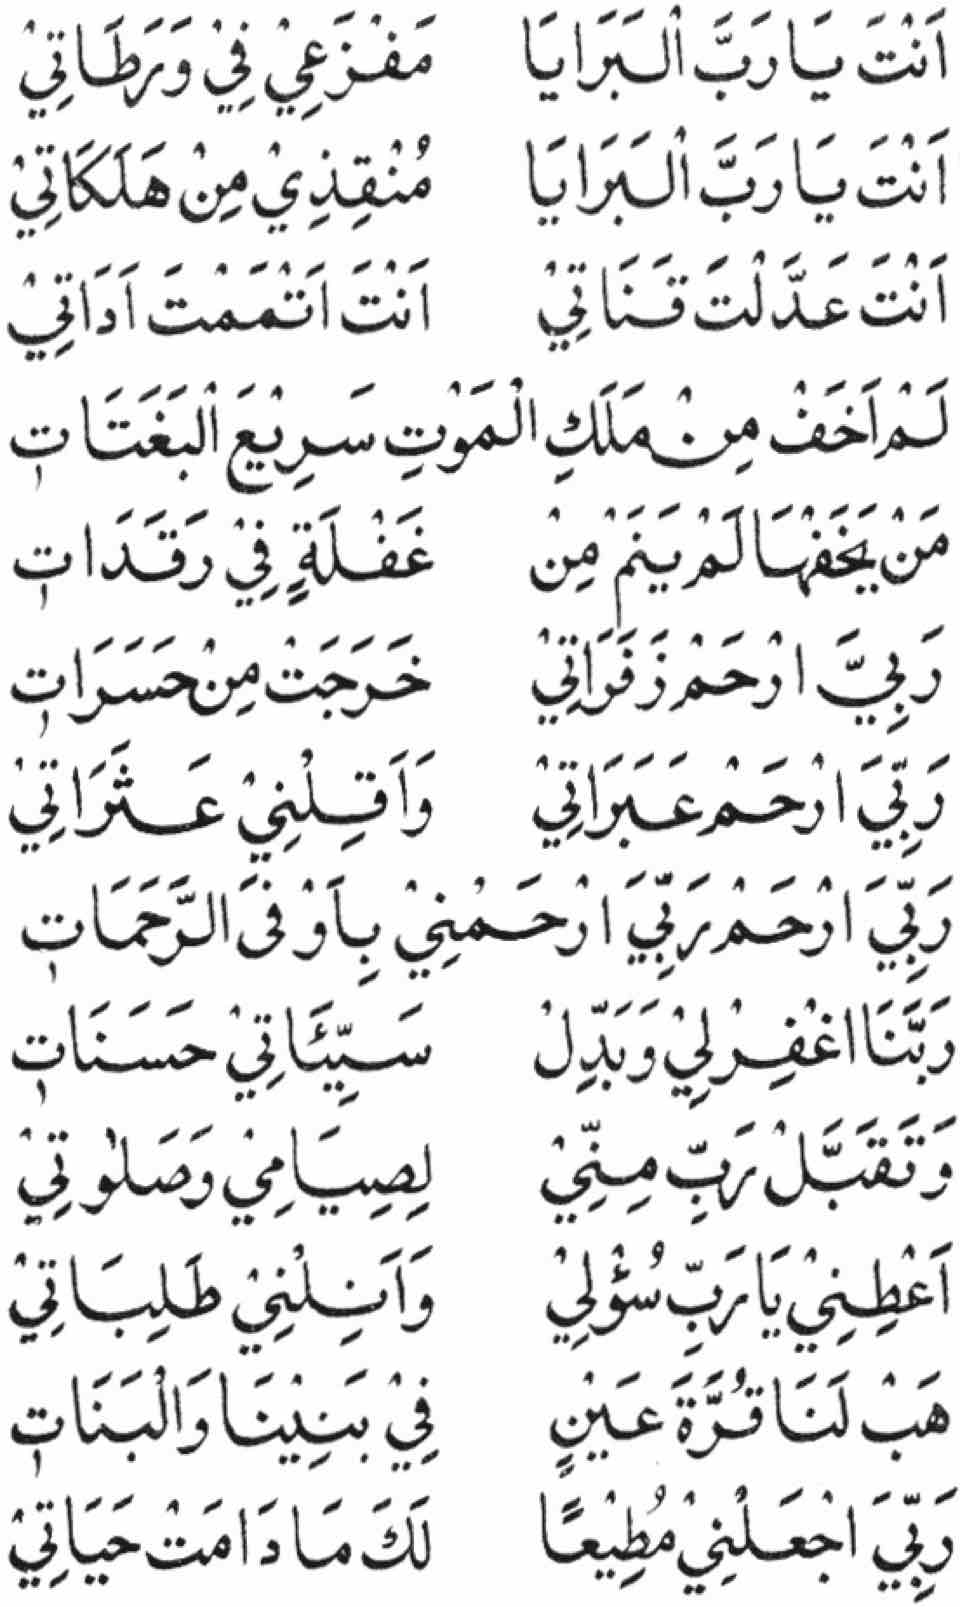 اَنْتَ يَا رَبَّ الْبَرَايَا مَفْزَعِيْ فِيْ وَرَطَاتِيْ
اَنْتَ يَا رَبَّ الْبَرَايَا مُنْقِذِيْ مِنْ هَلَكَاتِيْ
اَنْتَ عَدَّلْتَ قَنَاتِيْ اَنْتَ اَتْمَمْتَ اَدَاتِيْ
لَمْ اَخَفْ مِنْ مَلَكِ الْمَوْتِ سَرِيْعَ الْبَغَتَاتِ
مَنْ يَخَفْهَا لَمْ يَنَمْ مِنْ غَفْلَةٍ فِيْ رَقَدَاتِ
رَبِيَّ ارْحَمْ زَفَرَاتِيْ خَرَجَتْ مِنْ حَسَرَاتِ
رَبِّيَ ارْحَمْ عَبَرَاتِيْ وَاَقِلْنِيْ عَثَرَاتِيْ
رَبِّيَ ارْحَمْ رَبِّيَ ارْحَمْنِيْ بِاَوْفَى الرَّحَمَاتِ
رَبَّنَا اغْفِرْ لِيْ وَبَدِّلْ سَيِّئَاتِيْ حَسَنَاتِ
وَتَقَبَّلْ رَبِّ مِنِّيْ لِصِيَامِيْ وَصَلٰوتِيْ
اَعْطِنِيْ يَا رَبِّ سُؤْلِيْ وَاَنِلْنِيْ طَلِبَاتِيْ
هَبْ لَنَا قُرَّةَ عَيْنٍ فِيْ بَنِيْنَا وَالْبَنَاتِ
رَبِّيَ اجْعَلْنِيْ مُطِيْعًا لَكَ مَا دَامَتْ حَيَاتِيْ